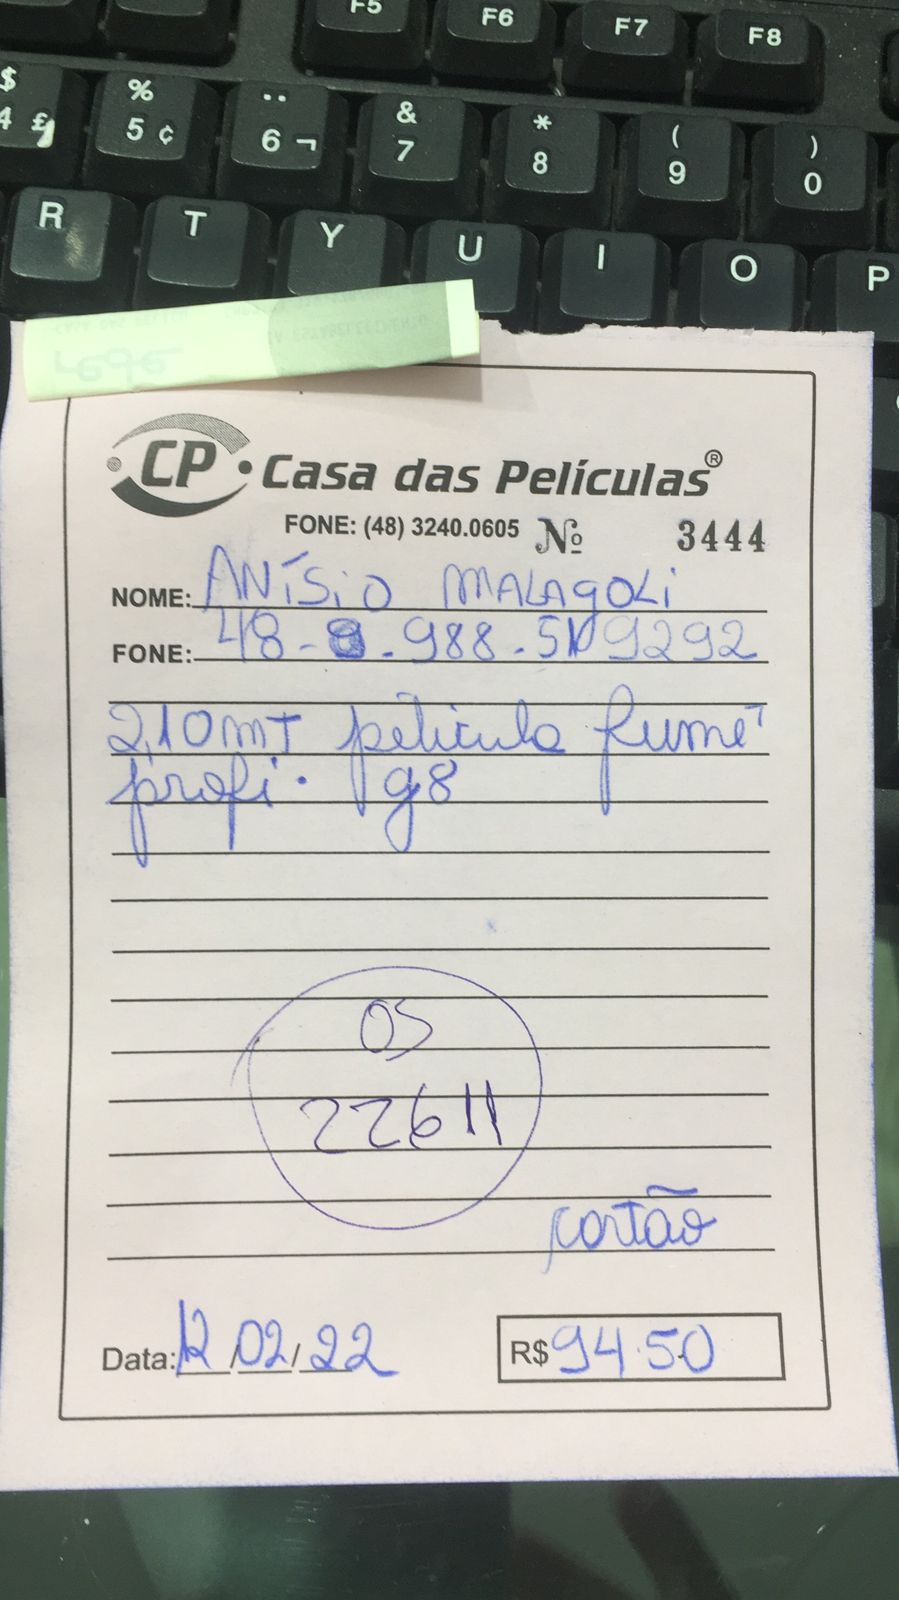 F5 F6 F7 F8
$ % ¨ & * ( )
4 £ 5 ¢ 6 ¬ 7 8 9 0
R T Y U I O P
CP Casa das Películas®
FONE: (48) 3240.0605 Nº 3444
NOME: ANÍSIO MALAGOLI
FONE: 48-9.988.519292
2,10mt película fumê
profi. g8
OS
22611
cartão
Data: 12/02/22 R$ 94.50